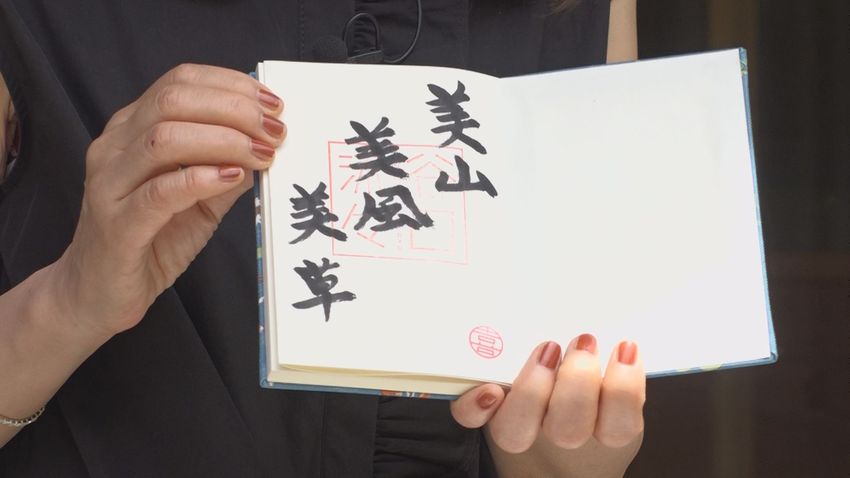 美山
美風
美草
喜